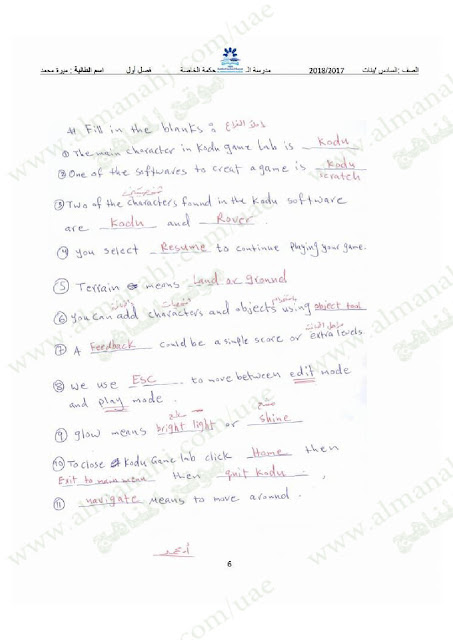 الصف : السادس /بنات 2018/2017 مدرسة الـ حكمة الخاصة فصل أول اسم الطالبة : ميرة محمد
# Fill in the blanks : املئي الفراغ
① The main character in Kodu game lab is Kodu
② One of the softwares to creat a game is Kodu
scratch
③ Two of the characters found in the Kodu software
are Kodu and Rover.
④ you select Resume to continue playing your game.
⑤ Terrain means Land or ground
⑥ You can add characters and objects using object tool
⑦ A Feedback could be a simple score or extra levels.
⑧ We use ESC to move between edit mode
and play mode.
⑨ glow means bright light or shine
⑩ To close Kodu Game lab click Home then
Exit to main menu then quit Kodu.
⑪ navigate means to move around.
6
www.almanahj.com/uae
موقع المناهج